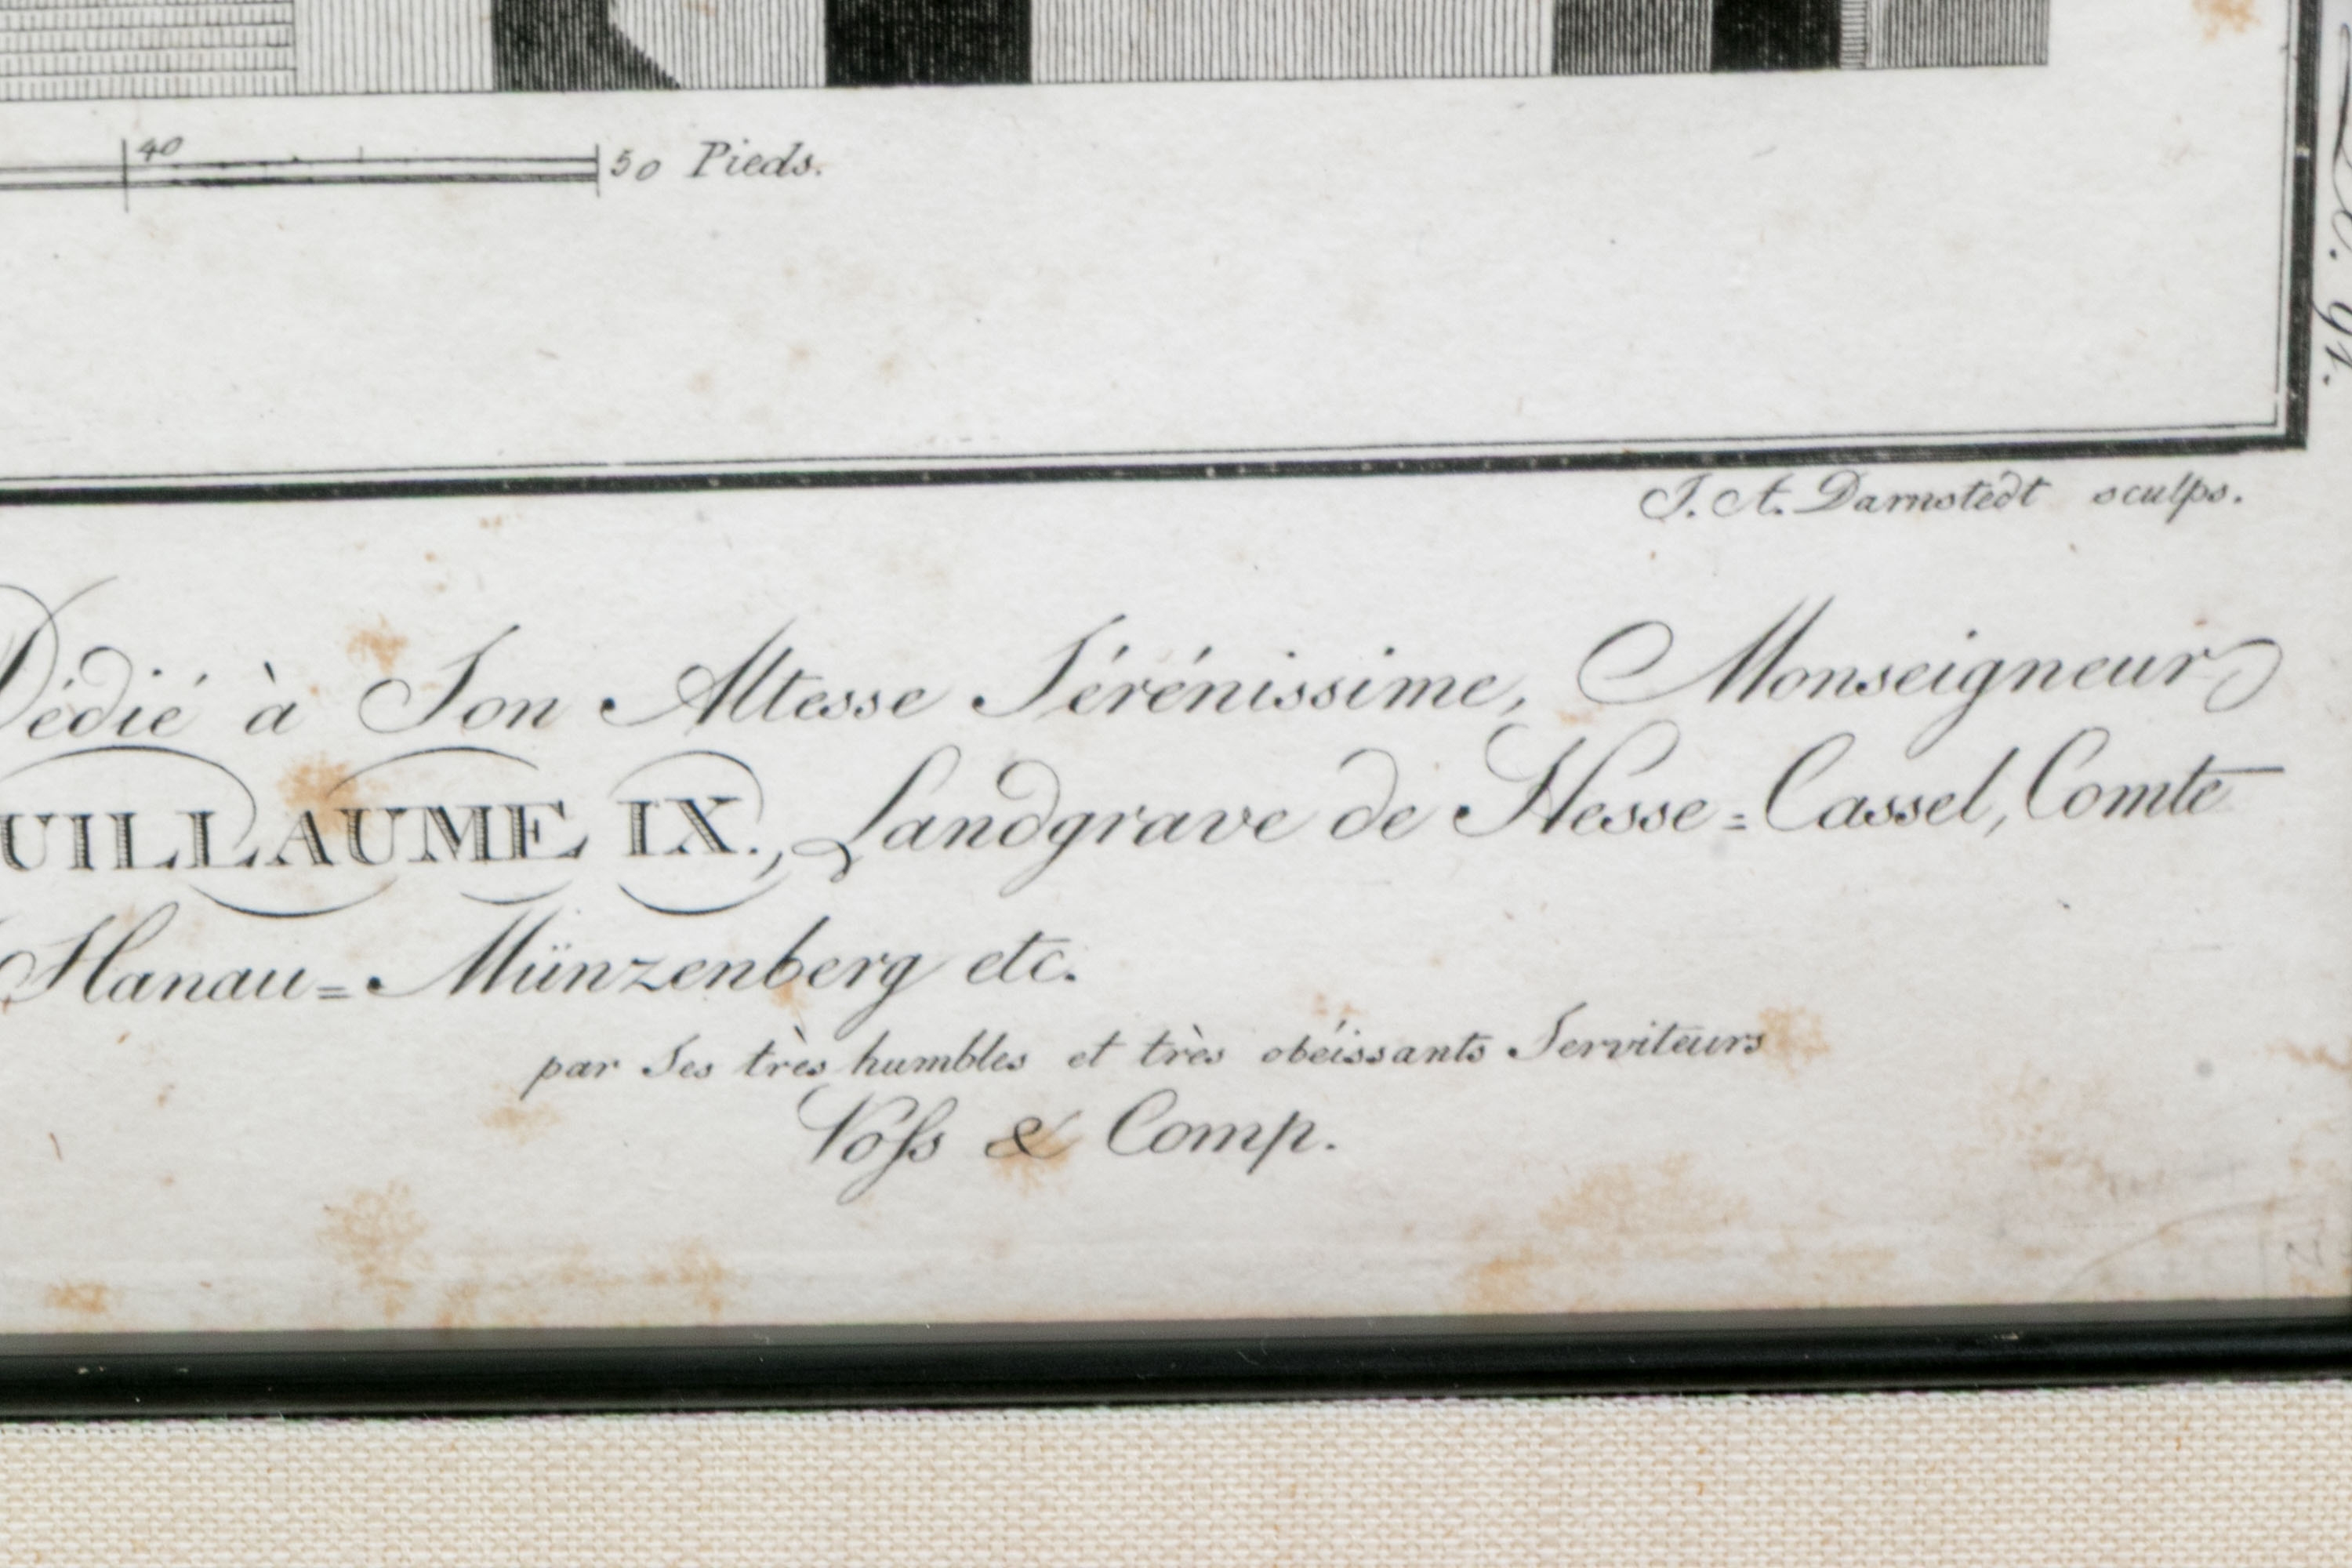 40 50 Pieds.
J. A. Darnstedt sculps.
Dédié à Son Altesse Sérénissime, Monseigneur
UILLAUME IX., Landgrave de Hesse=Cassel, Comte
Hanau=Münzenberg etc.
par Ses très humbles et très obéissants Serviteurs
Voſs & Comp.